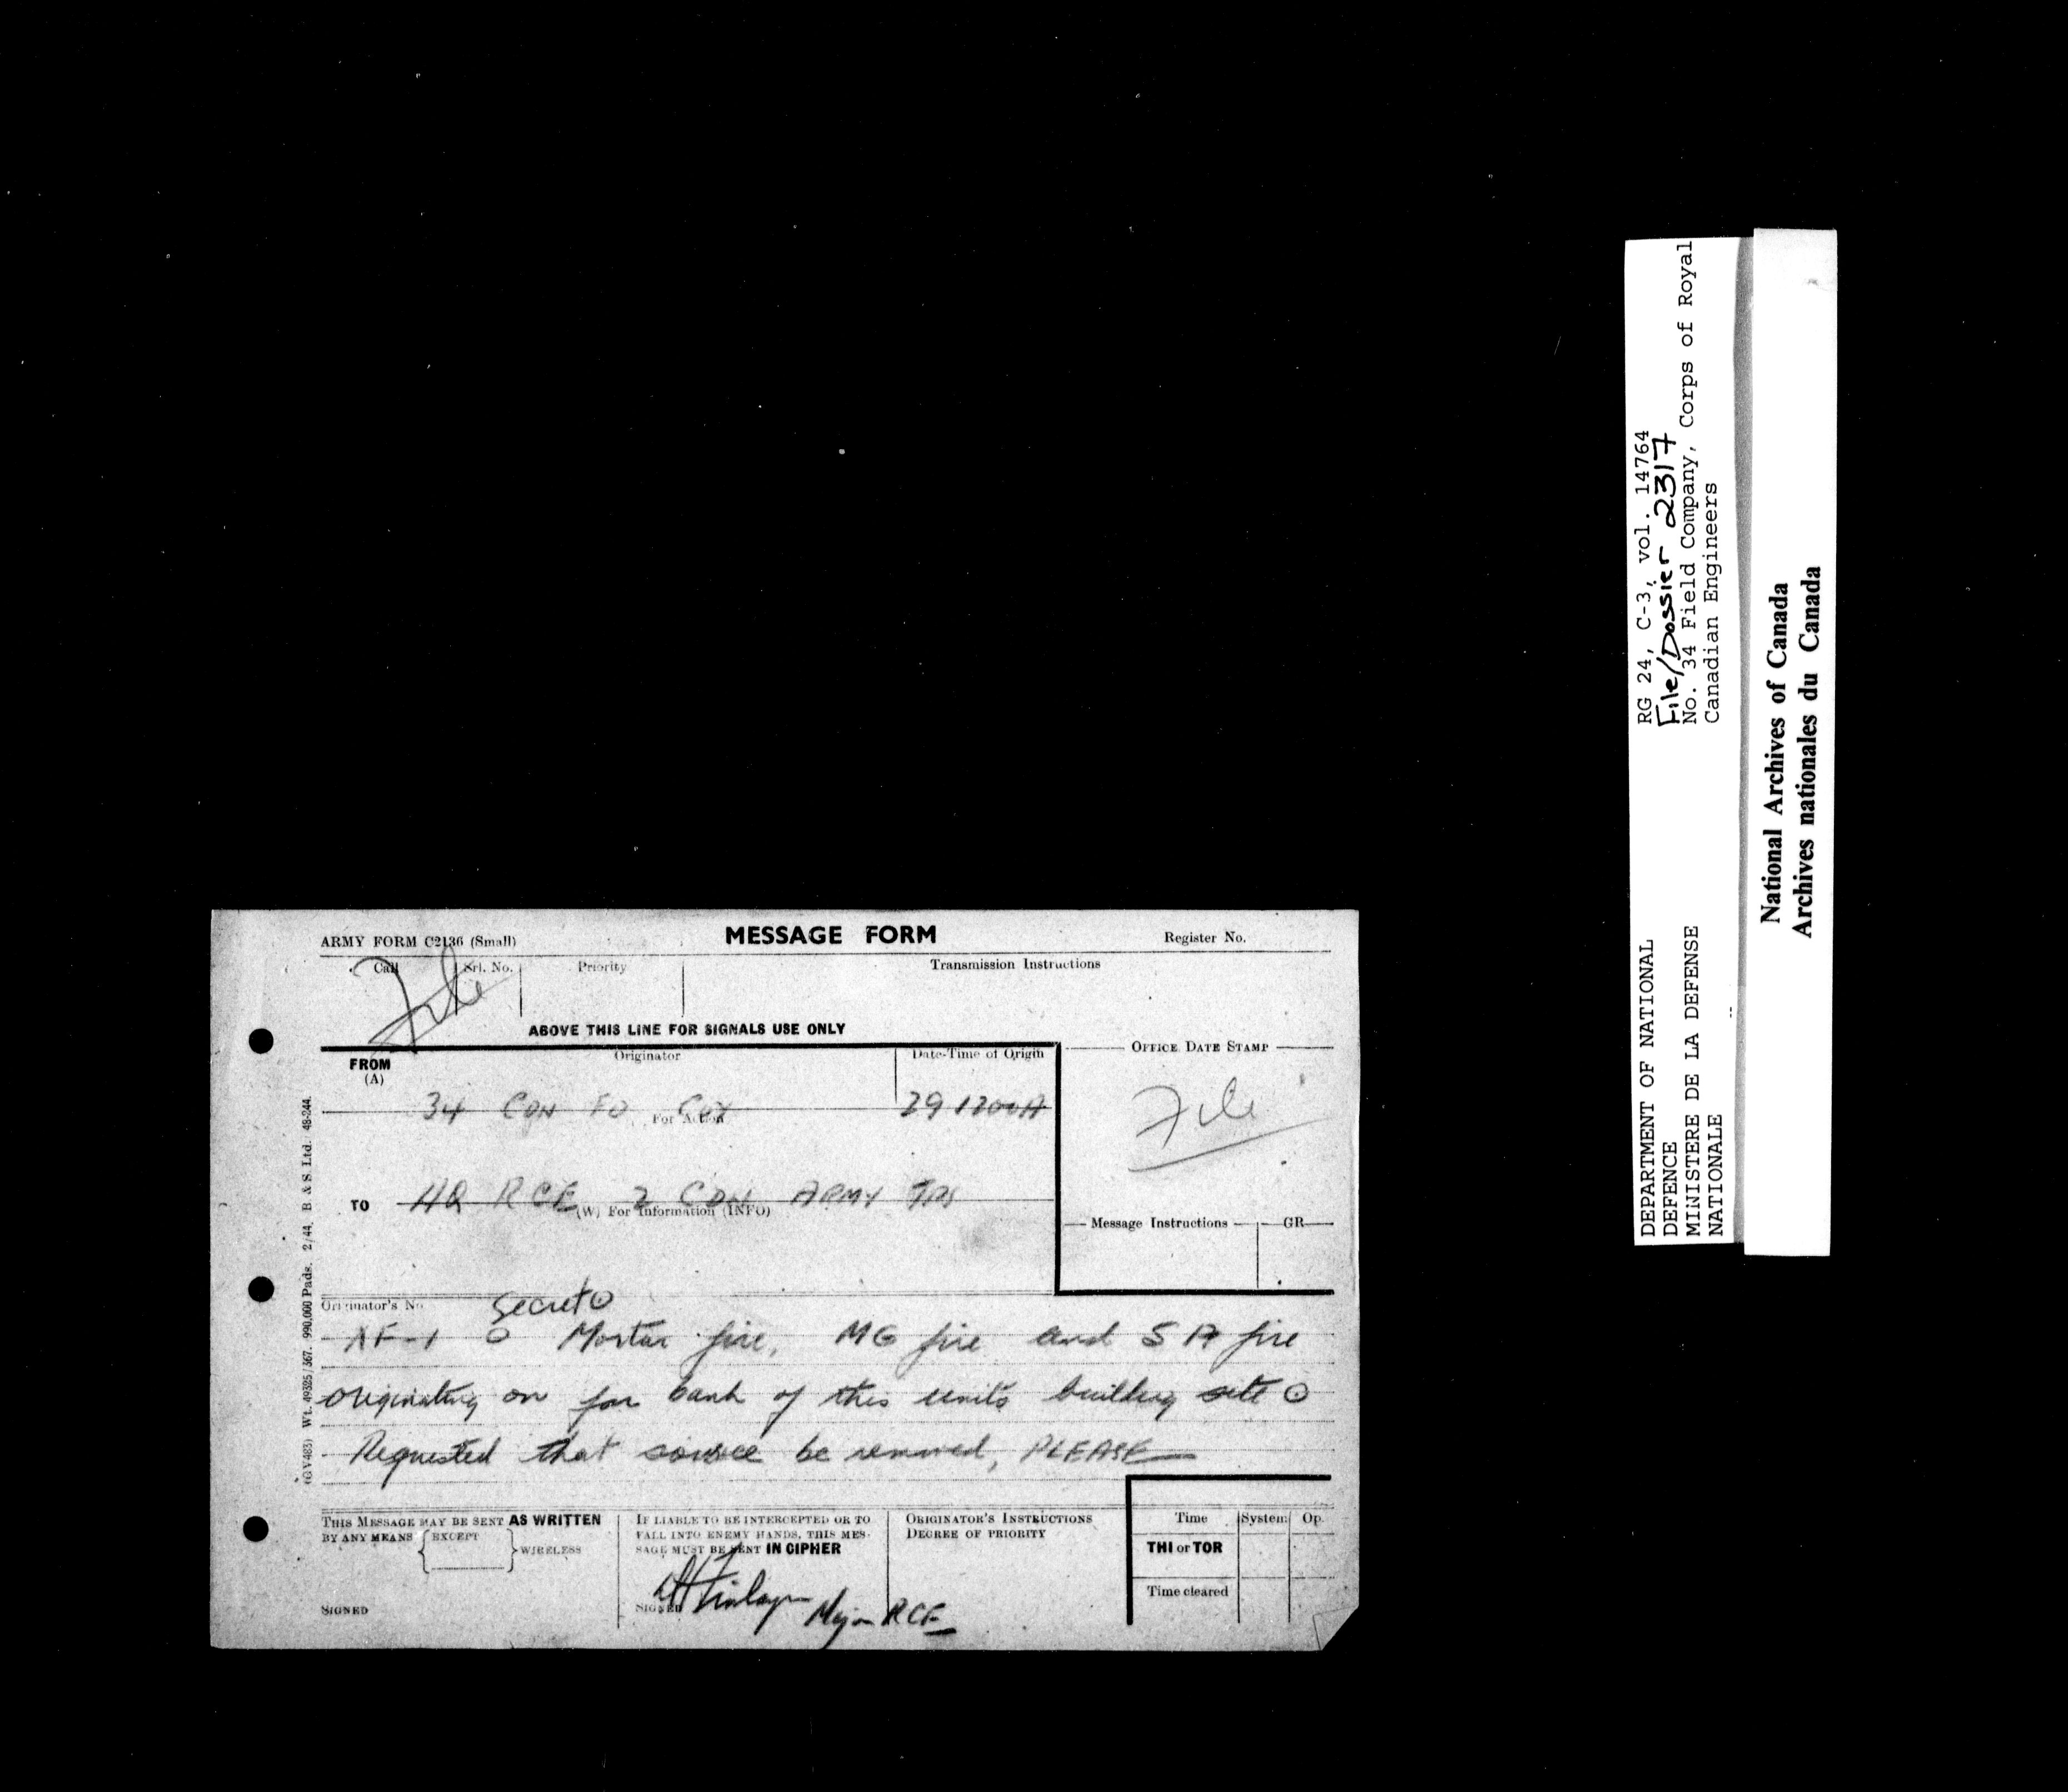 ARMY FORM C2136 (Small)
MESSAGE FORM
Register No.
Call
Srl. No.
Priority
Transmission Instructions
File
ABOVE THIS LINE FOR SIGNALS USE ONLY
FROM
(A)
Originator
Date-Time of Origin
OFFICE DATE STAMP
34 CDN FD COY
291200A
For Action
File
TO
HQ RCE 2 CDN ARMY TPS
(W) For Information (INFO)
Message Instructions
GR
Originator's No
Secret ⊙
AF-1 O Mortar fire, MG fire and SA fire
originating on far bank of this units building site ⊙
Requested that source be removed, PLEASE
THIS MESSAGE MAY BE SENT AS WRITTEN
BY ANY MEANS { EXCEPT } WIRELESS
SIGNED
IF LIABLE TO BE INTERCEPTED OR TO
FALL INTO ENEMY HANDS, THIS MES-
SAGE MUST BE SENT IN CIPHER
SIGNED
Finlayson Major RCE
ORIGINATOR'S INSTRUCTIONS
DEGREE OF PRIORITY
Time System Op.
THI or TOR
Time cleared
(GV483) Wt. 49325/367. 990,000 Pads. 2/44. B. & S. Ltd. 48-244.
RG 24, C-3, vol. 14764
File/Dossier 2317
No. 34 Field Company, Corps of Royal
Canadian Engineers
DEPARTMENT OF NATIONAL
DEFENCE
MINISTERE DE LA DEFENSE
NATIONALE
National Archives of Canada
Archives nationales du Canada